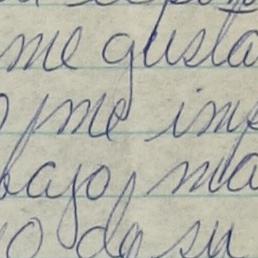 me gusta
me imp
bajo, ma
do su